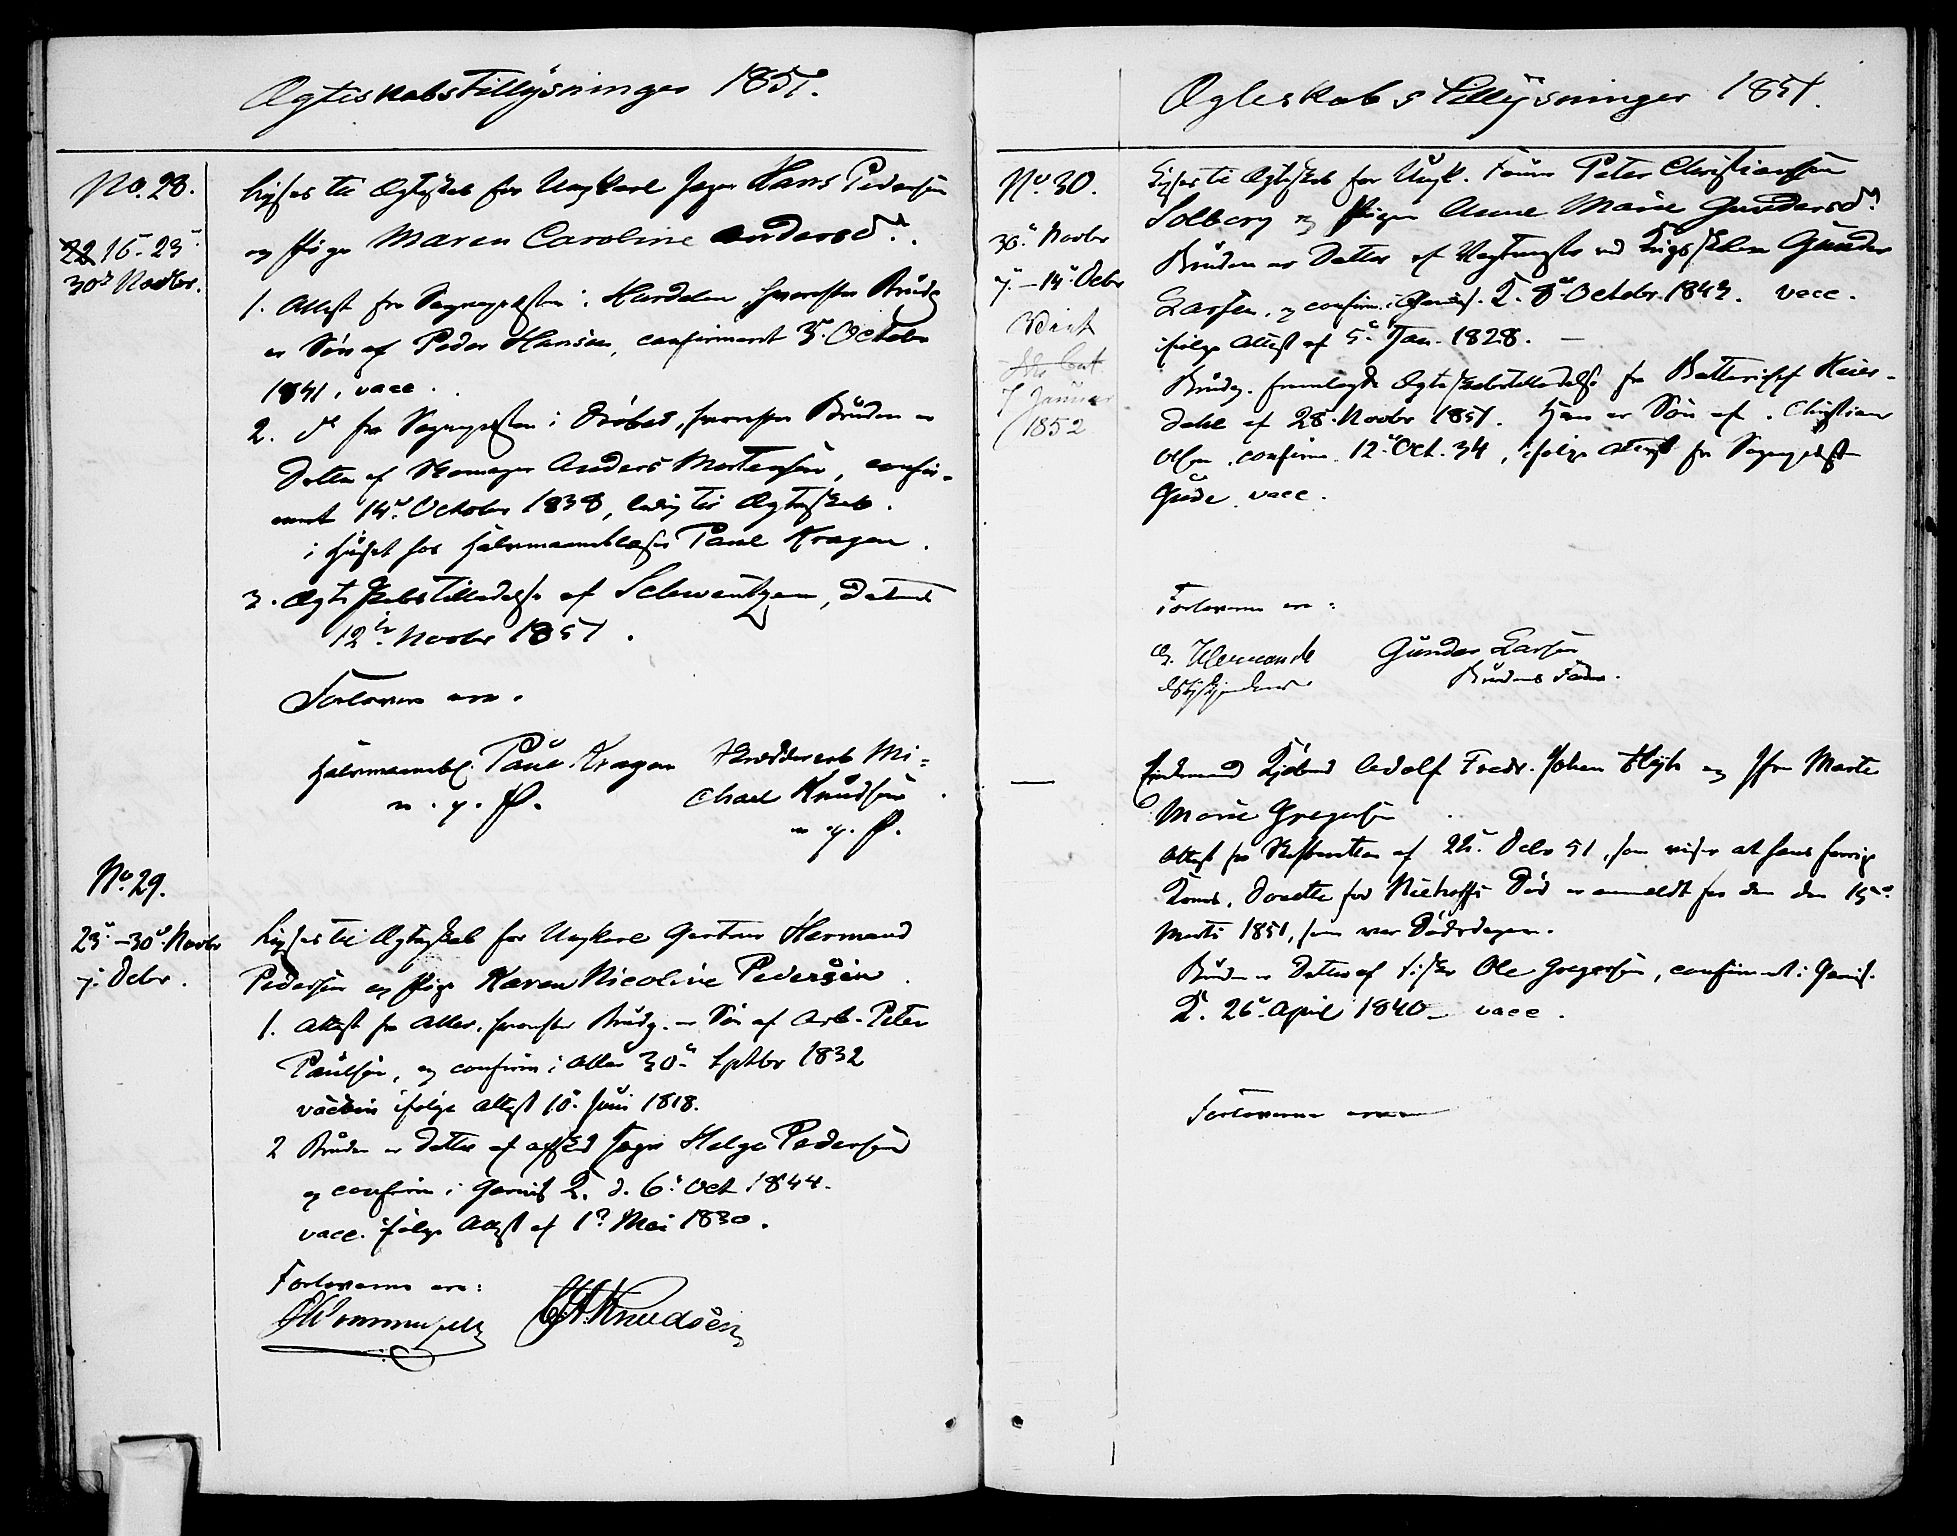 Ægteskabstillysninger 1851.
No. 28.
22 16-23
30d Novbr.
Lyses til Ægteskab for Ungkarl Jæger Hans Pedersen
og Pige Maren Caroline Andersd.
1. Attest fra Sognepresten i Hurdalen, hvorefter Brudg
er Søn af Peder Hansen, confirmeret 3. October
1841, vacc.
2. do fra Sognepresten i Drøbak, hvorefter Bruden er
Datter af Skomager Anders Mortensen, confir-
meret 14de October 1838, ledig til Ægteskab.
i Huset hos Halvmaanebl. Paul Kragen.
3. Ægteskabstilladelse af Schwentzen, dateret
12te Novbr 1851.
Forlovere ere.
Halvmaanebl. Paul Kragen
m. p. P.
Mi-
chael Knudsen
m. p. P.
No. 29.
23-30 Novbr
7 Decbr.
Lyses til Ægteskab for Ungkarl Hermand
Pedersen og Pige Karen Nicoline Pedersen
1. Attest fra Aker, hvorefter Brudg. er Søn af Arb. Peter
Paulsen, og confirm i Aker 30 Septbr 1832
vaccin ifølge Attest 10. Juni 1818.
2 Bruden er Datter af afsked Jæger Helge Pedersen
og confirm i Garnis K. d. 6. Oct 1844.
vacc. ifølge Attest af 1 Mai 1830.
Forloverne ere:
Knudsen
Ægteskabstillysninger 1851.
No. 30.
30 Novbr
7-14 Decbr
Viet
7 Januar
1852
Lyses til Ægteskab for Ungk. Peter Christiansen
Solberg og Pigen Anne Marie Gundersd.
Bruden er Datter af Vagtmester ved Krigsskolen Gunder
Larsen, og confirm. i Garnis. K. 8 Octobr 1843. vacc.
ifølge Attest af 5 Jan. 1828.
Brudg. fremlagde Ægteskabstilladelse fra Batterichef Heier-
dahl af 28 Novbr 1851. Han er Søn af Christian
Olsen, confirm. 12 Oct. 34, ifølge Attest fra Sogneprest
Gude. vacc.
Forloverne ere:
Gunder Larsen
Brudens Fader.
Enkemand Adolf Fredr. Johan og Jfr Marte
Marie Gregersen
Attest fra Skifteretten af 22. Decbr 51, som viser at hans forrige
Kones, Dorette Død er anmeldt for den den 15
Marts 1851, som var Dødsdagen.
Bruden er Datter af Ole Gregersen, confirmeret i Garnis.
K. 26 April 1840 - vacc.
Forloverne ere